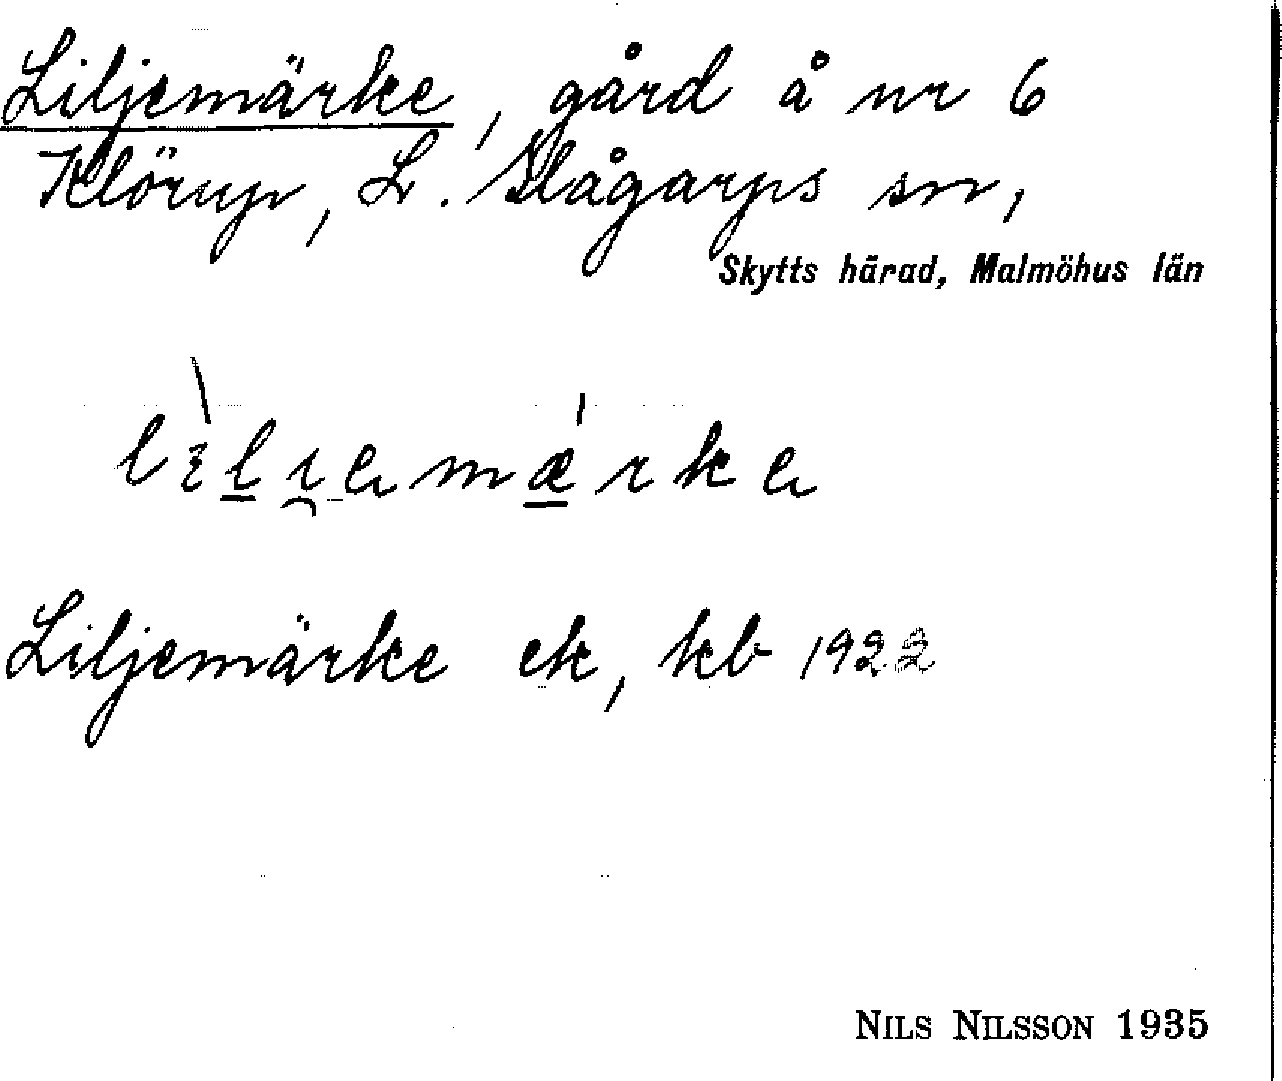 Liljemärke, gård å nr 6
Klörup, L. Slågarps sn,
Skytts härad, Malmöhus län
Liljemärke ek, kb 1922
NILS NILSSON 1935